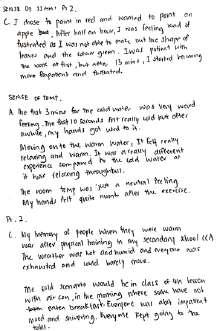 SENSE OF SIGHT Pt 2.
C. I chose to paint in red and wanted to paint an
apple but, after half an hour, I was feeling kind of
frustrated as I was not able to make out the shape of
and the colour green. I was patient with
the work at first, but after 15 mins, I started becoming
more impatient and frustrated.
SENSE OF TEMP.
A. The first 3 mins for the cold water was very weird
feeling. The first 10 seconds felt really cold but after
awhile, my hands got used to it.
Moving on to the warm water, it felt really
relaxing and warm. It was a really different
experience compared to the cold water as
it was relaxing throughout.
The room temp was just a neutral feeling
My hands felt quite numb after the exercise.
Pt. 2.
C. My memory of people when they were warm
was after physical training in my secondary school CCA
The weather was hot and humid and everyone was
exhausted and could barely move.
The cold scenario would be in class of ten lesson
with air con, in the morning where some have not
even eaten breakfast. Everyone was also impatient
and shivering. Everyone kept going to the
toilet.